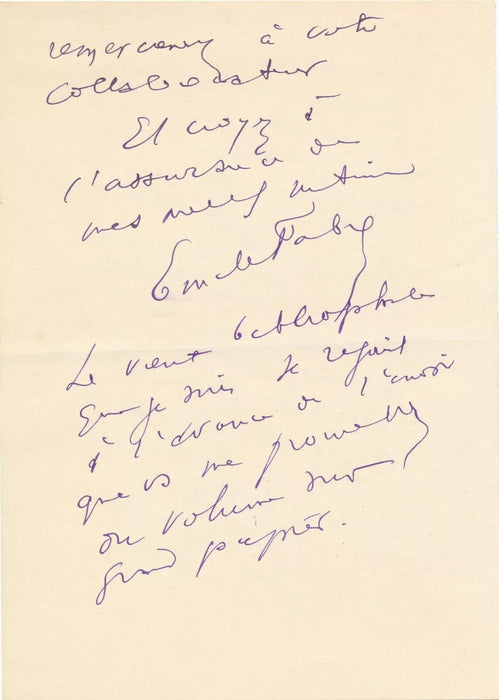 remerciements à votre
collaborateur
Et croyez à
l'assurance de
mes meill sentiments
Emile Fabre
Le vieux bibliophile
que je suis se rejouit
à l'avance de l'envoi
que vs me promettez
du volume sur
grand papier.